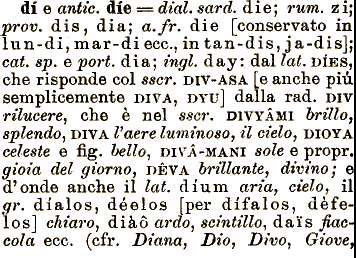 dí e antic. díe = dial. sard. die; rum. zi;
prov. dis, dia; a. fr. die [conservato in
lun-di, mar-di ecc., in tan-dis, ja-dis];
cat. sp. e port. dia; ingl. day: dal lat. DÍES,
che risponde col sscr. DIV-ASA [e anche piú
semplicemente DIVA, DYU] dalla rad. DIV
rilucere, che è nel sscr. DIVYÂMI brillo,
splendo, DIVA l'aere luminoso, il cielo, DIOYA
celeste e fig. bello, DIVÂ-MANI sole e propr.
gioia del giorno, DÊVA brillante, divino; e
d'onde anche il lat. díum aria, cielo, il
gr. díalos, déelos [per dífalos, dèfe-
los] chiaro, diàô ardo, scintillo, daïs fiac-
cola ecc. (cfr. Diana, Dio, Divo, Giove,